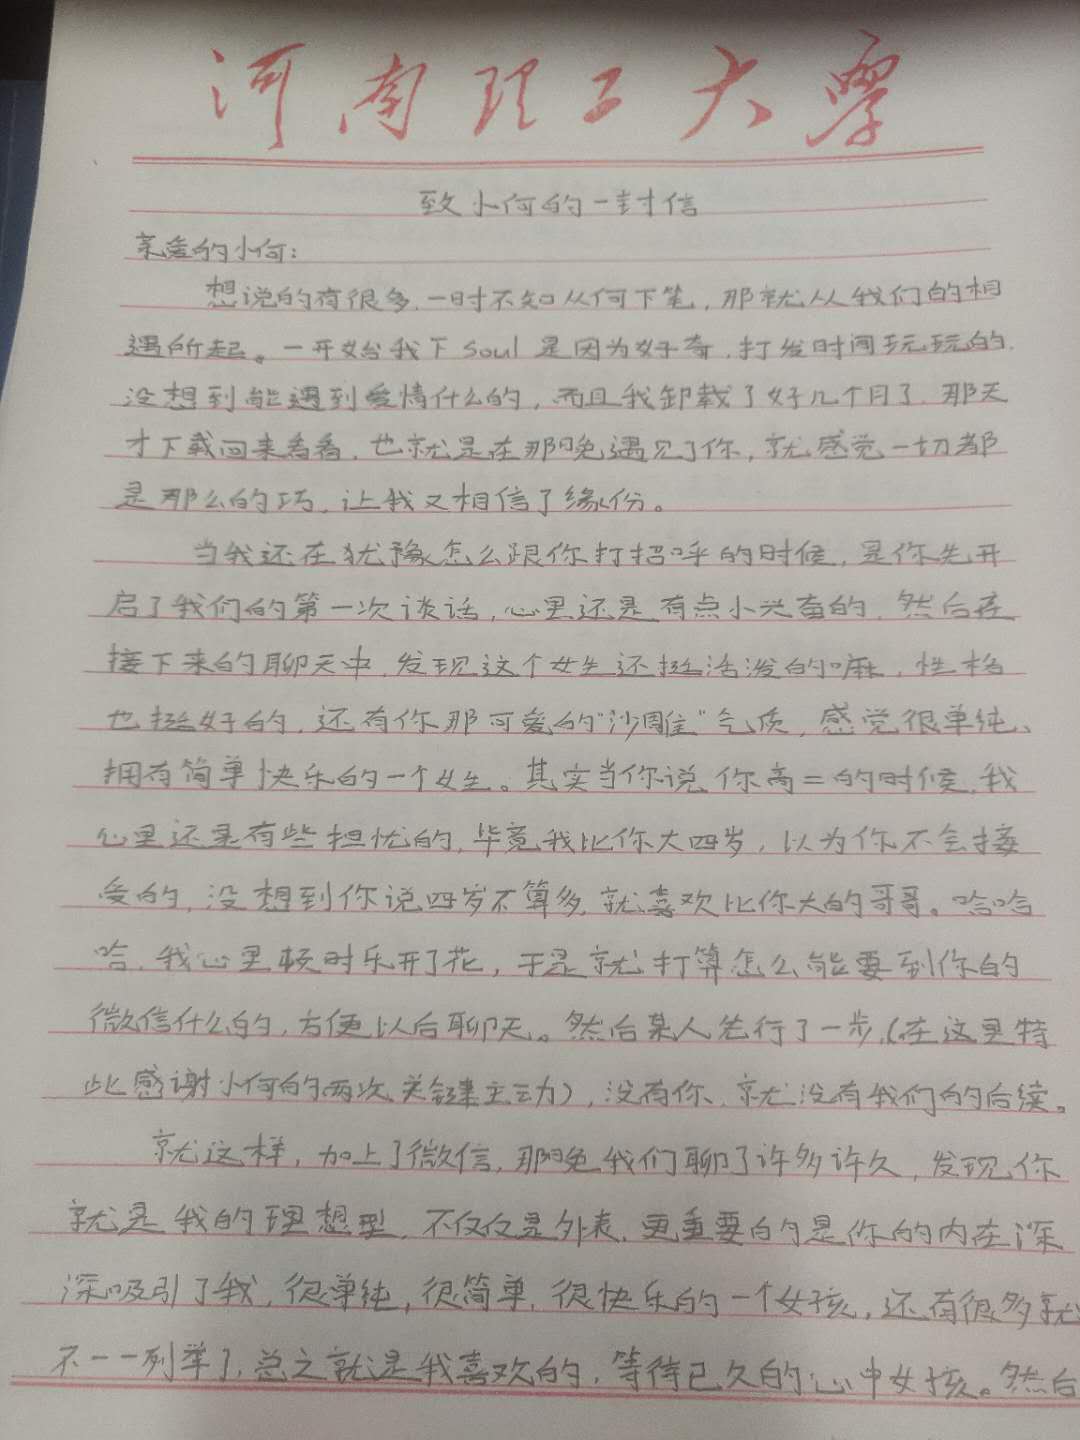 河南理工大学
致小何的一封信
亲爱的小何：
想说的有很多，一时不知从何下笔，那就从我们的相
遇所起。一开始我下soul是因为好奇，打发时间玩玩的，
没想到能遇到爱情什么的，而且我卸载了好几个月了，那天
才下载回来看看，也就是在那晚遇见了你，就感觉一切都
是那么的巧，让我又相信了缘份。
当我还在犹豫怎么跟你打招呼的时候，是你先开
启了我们的第一次谈话，心里还是有点小兴奋的，然后在
接下来的聊天中，发现这个女生还挺活泼的嘛，性格
也挺好的，还有你那可爱的“沙雕”气质，感觉很单纯、
拥有简单快乐的一个女生。其实当你说你高二的时候，我
心里还是有些担忧的，毕竟我比你大四岁，以为你不会接
受的，没想到你说四岁不算多，就喜欢比你大的哥哥。哈哈
哈，我心里顿时乐开了花，于是就打算怎么能要到你的
微信什么的，方便以后聊天。然后某人先行了一步，（在这里特
此感谢小何的两次关键主动），没有你，就没有我们的后续。
就这样，加上了微信，那晚我们聊了许多许久，发现你
就是我的理想型，不仅仅是外表，更重要的是你的内在深
深吸引了我，很单纯，很简单，很快乐的一个女孩，还有很多就
不一一列举了，总之就是我喜欢的，等待已久的心中女孩。然后